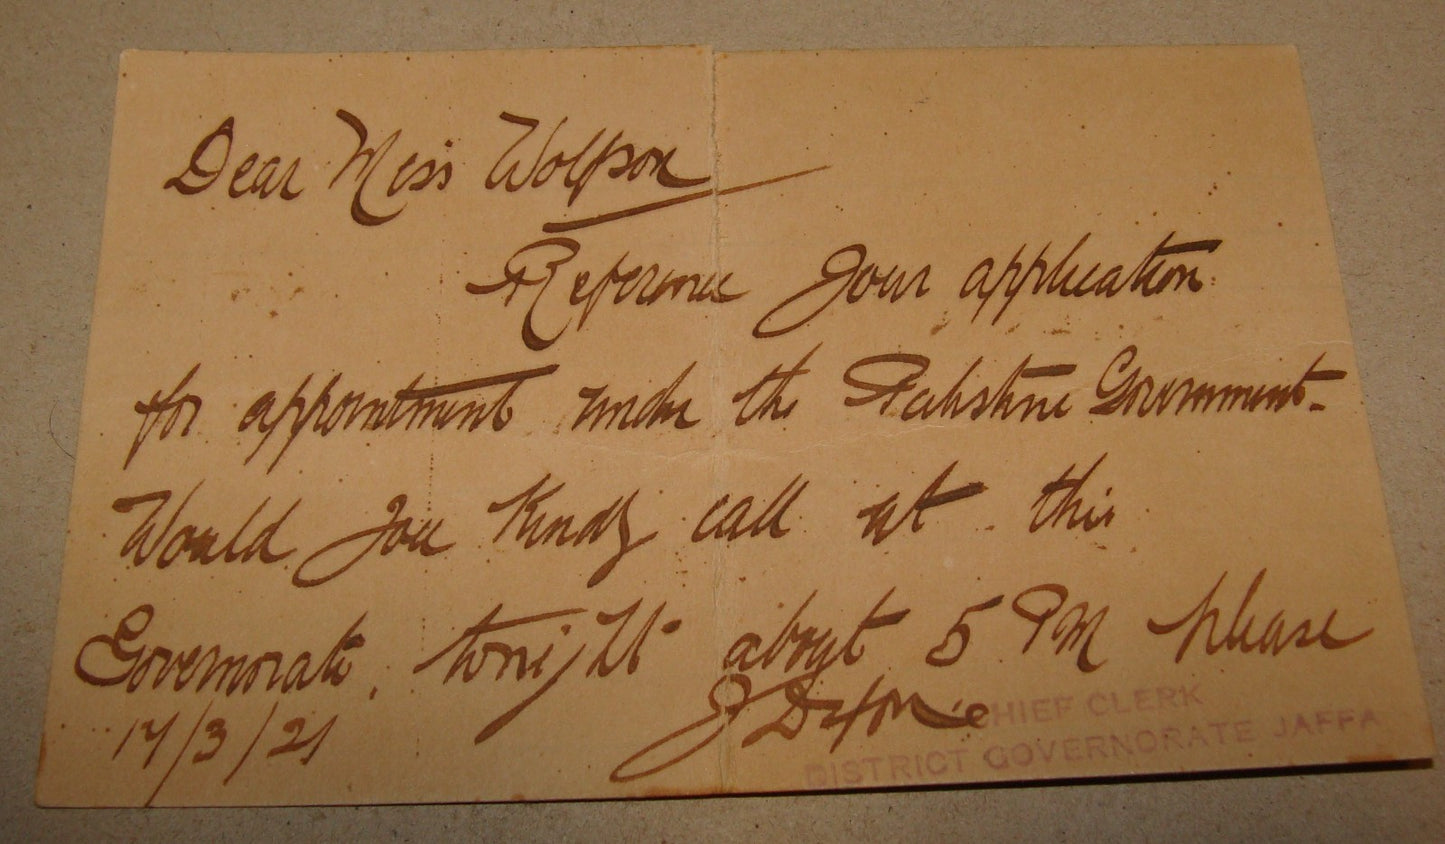 Dear Miss Wolfson
Reference your application
for appointment under the Palestine Government.
Would you kindly call at this
Governorate, tonight about 5 PM please
17/3/21
CHIEF CLERK
DISTRICT GOVERNORATE JAFFA